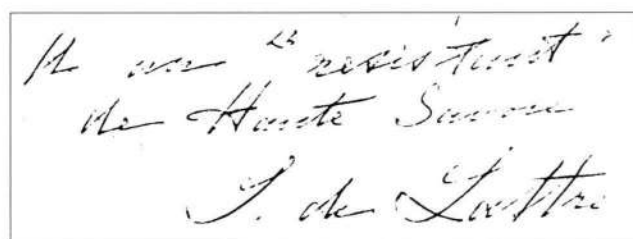 A un "résistant"
de Haute Savoie
de Lattre